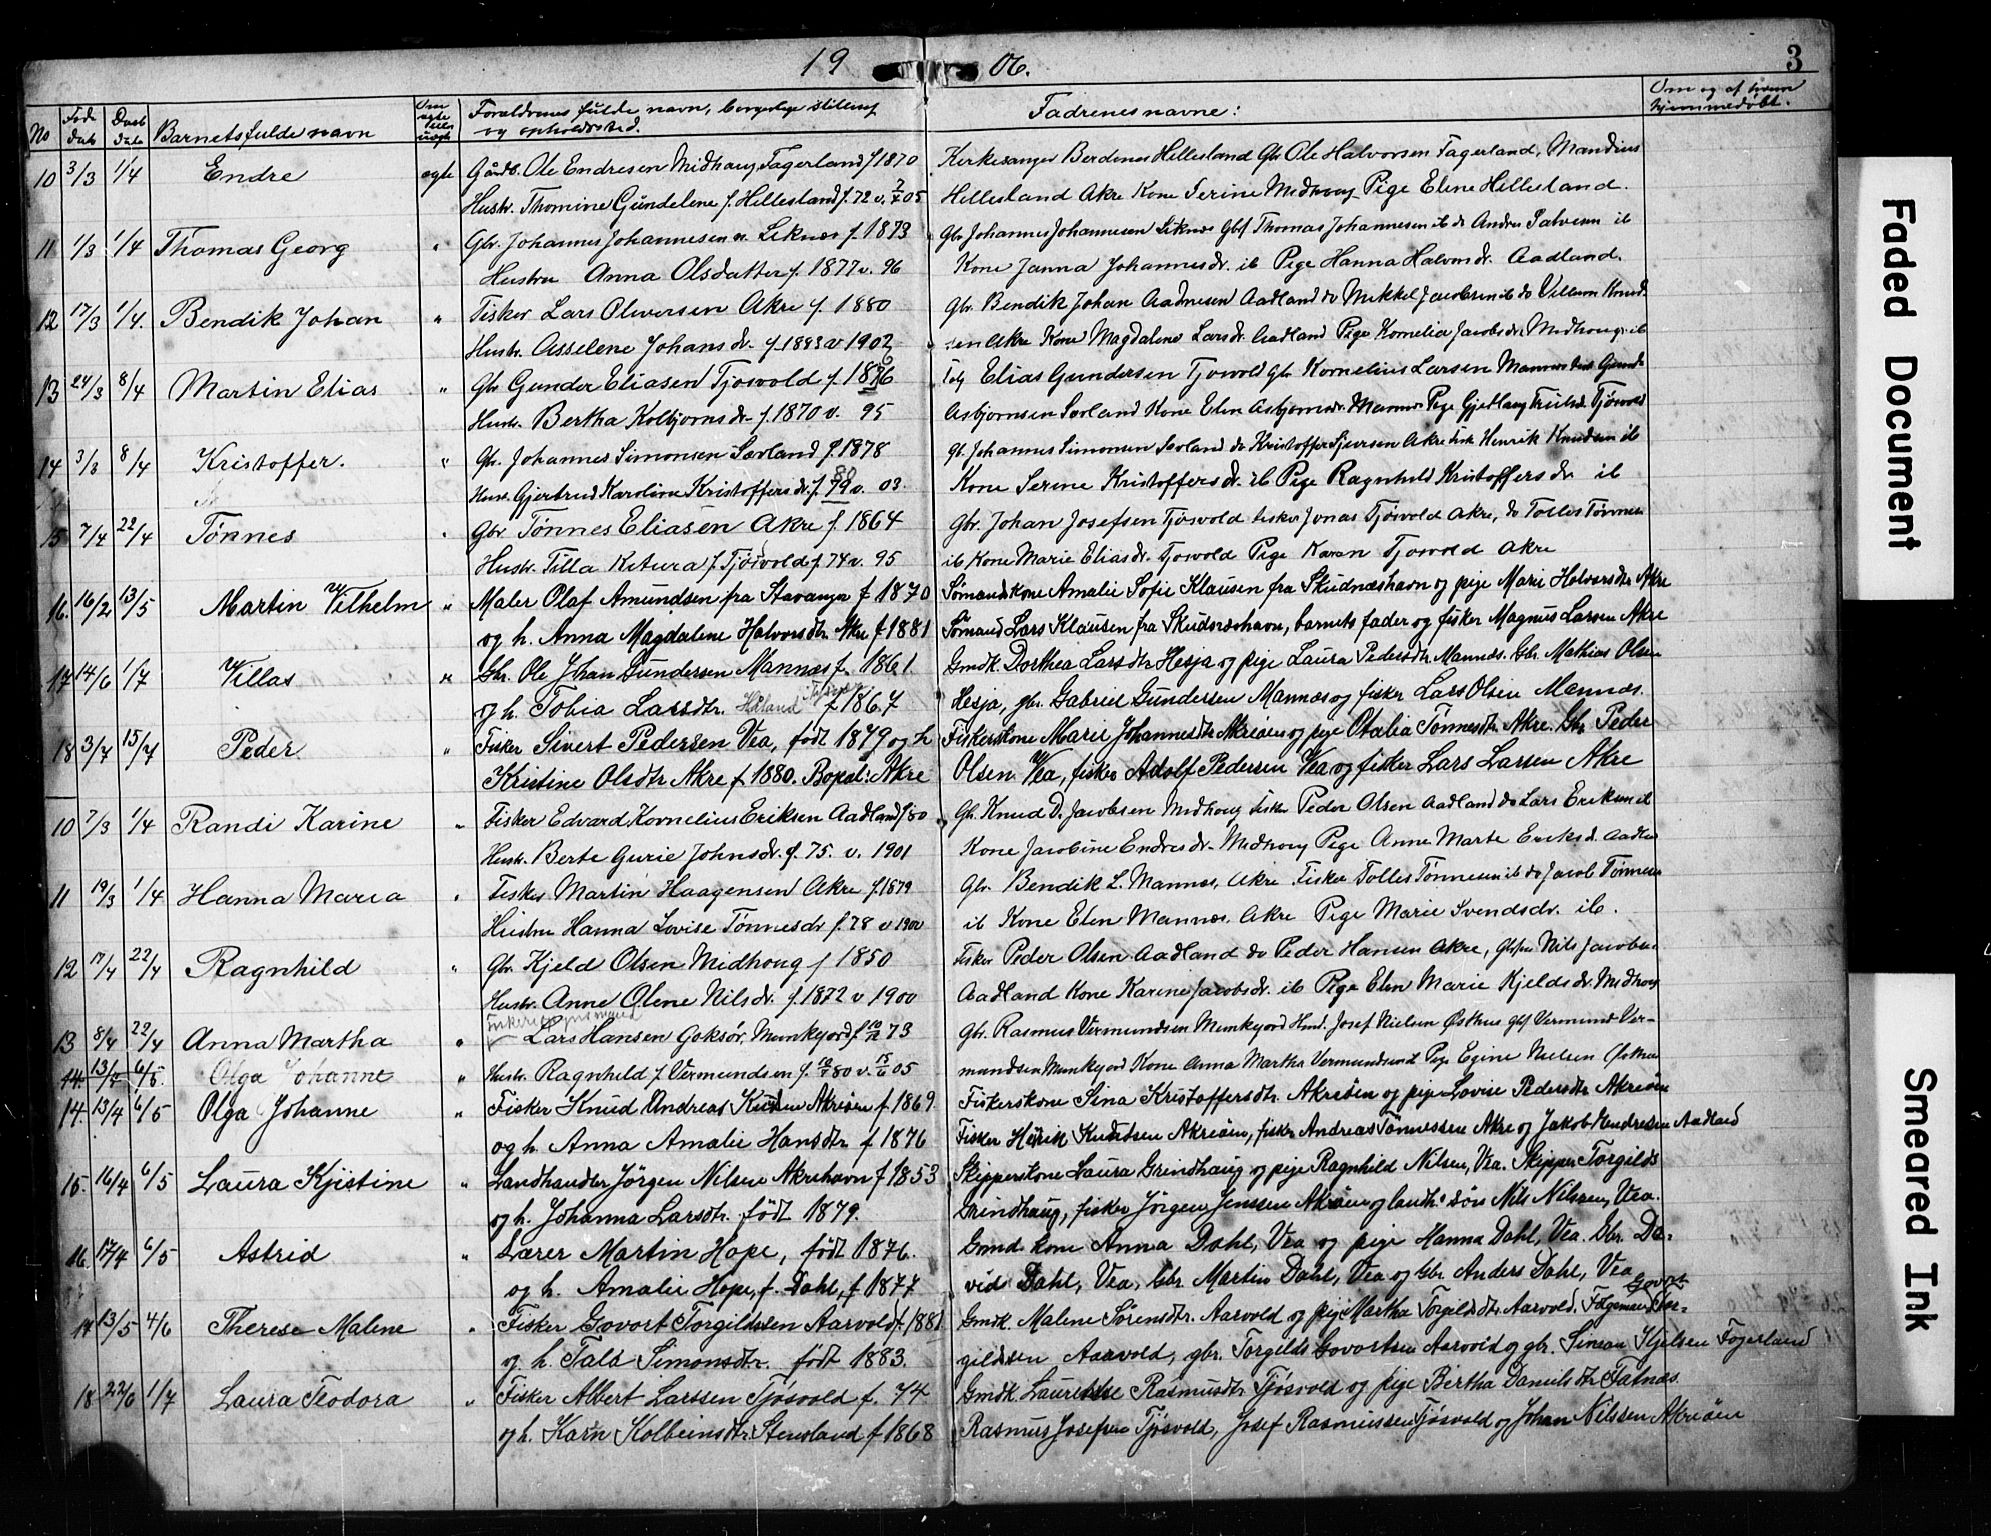 19 06.
3
No Fød. dat Døbt dat Barnets fulde navn Om egte eller uegte Forældrenes fulde navn, borgerlige stilling og opholdssted. Fadrenes navne: Om og af hvem hjemmedøbt.
10 3/3 1/4 Endre egte Gårdb. Ole Endresen Midhaug Fagerland f 1870 Kirkesanger Berdenes Hillesland Gbr Ole Halvorsen Fagerland, Mandius
Hustr. Thomine Gundelene f. Hillesland f. 72 v. 7/7 05 Hillesland Akre Kone Serine Midhoug Pige Elene Hillesland.
11 1/3 1/4 Thomas Georg " Gbr. Johannes Johannesen Liknes f. 1873 Gbr Johannes Johannesen Liknes Gbf Thomas Johannesen ib do Andreas Salvesen ib
Hustru Anna Olsdatter f. 1877 v. 96 Kone Janna Johannesdr. ib Pige Hanna Halvorsdr. Aadland.
12 17/3 1/4. Bendik Johan " Fisker Lars Oliversen Akre f. 1880 Gbr. Bendik Johan Aadnesen Aadland do Mikkel Jacobsen ib do Villum Knud-
Hustr. Asselene Johansdr. f. 1883 v 1902 sen Akre Kone Magdalene Larsdr. Aadland Pige Kornelia Jacobsdr. Midhoug ib
13 24/3 8/4 Martin Elias " Gbr Gunder Eliasen Tjøsvold f. 1876 Elias Gundersen Tjøsvold Gbr Kornelius Larsen Mannes
Hustr. Bertha Kolbjørnsdr. f. 1870 v. 95 Asbjørnsen Sævland Kone Elen Asbjørnsdr. Mannes Pige Tjøsvold
14 3/3 8/4 Kristoffer. " Gbr. Johannes Simonsen Sævland f. 1878 Gb. Johannes Simonsen Sævland do Kristoffer Sjursen Akre Fisk Henrik Knudsen ib
Hustr. Gjertrud Karoline Kristoffersdr. f. 79 80 v. 03. Kone Serine Kristoffersdr. ib Pige Ragnhild Kristoffersdr ib
15 7/4 22/4 Tønnes " Gbr Tønnes Eliasen Akre f. 1864 Gbr. Johan Josefsen Tjøsvold Fisker Jonas Tjøsvold Akre, do Tolles Tønnes
Hustr. Tilla Ketura f. Tjøsvold f. 74 v. 95 ib Kone Marie Eliasdr. Tjøsvold Pige Karen Tjøsvold Akre
16. 16/2 13/5 Martin Vilhelm " Maler Olaf Amundsen fra Stavanger f 1870 Sømandskone Amalie Sofie Klausen fra Skudneshavn og pige Marie Halvorsdtr Akre
og h. Anna Magdalene Halvorsdtr Akre f 1881 Sømand Lars Klausen fra Skudneshavn, barnets fader og fisker Magnus Larsen Akre
17 14/6 1/7 Villas " Gbr. Ole Johan Gundersen Mannes f. 1861. Gmdk. Dorthea Larsdtr Hesja og pige Laura Pedersdtr Mannes. Gbr. Mathias Olsen
og h. Tobia Larsdtr. Håland f 1867 Hesja, gbr. Gabriel Gundersen Mannes og fisker Lars Olsen Mannes.
18 3/7 15/7 Peder. " Fisker Sivert Pedersen Vea, født 1879 og h Fiskerskone Marie Johannesdtr Akreøen og pige Otalia Tønnesdtr Akre. Gbr Peder
Kristine Olsdtr Akre f 1880. Bopæl: Akre Olsen Vea, fisker Adolf Pedersen Vea og fisker Lars Larsen Akre
10 7/3 1/4 Randi Karine " Fisker Edvard Kornelius Eriksen Aadland f 80 Gb. Knud D. Jacobsen Midhoug Fisker Peder Olsen Aadland do Lars Eriksen ib
Hustr. Berte Gurie Johnsdr. f. 75. v. 1901 Kone Jacobine Endresdr. Midhoug Pige Anne Marte Eriksd. Aadland
11 19/3 1/4 Hanna Maria " Fisker Martin Haagensen Akre f. 1879 Gbr. Bendik L. Mannes, Akre Fisker Tolles Tønnesen ib do Jacob Tønnesen
Hustru Hanna Lovise Tønnesdr f. 78 v 1900 ib Kone Elen Mannes. Akre Pige Marie Svendsdr. ib.
12 17/4 22/4 Ragnhild " Gbr. Kjeld Olsen Midhoug f 1850 Fisker Peder Olsen Aadland do Peder Hansen Akre, Nils Jacobsen
Hustr. Anne Olene Nilsdr. f. 1872 v 1900 Aadland Kone Karine Jacobsdr. ib Pige Elen Marie Kjeldsdr. Midhoug
13 8/4 22/4 Anna Martha " Lars Hansen Goksør, Munkejord f 73 Gbr. Rasmus Vermundsen Munkejord Josef Nielsen Østhus gbf Vermund Ver-
14. 13/4 6/5. Olga Johanne " Hustr. Ragnhild f Vermundsen f. 80 v. 15/6 05 mundsen Munkejord Kone Anna Martha Vermundsen Pige Egine Nielsen
14. 13/4 6/5 Olga Johanne " Fisker Knud Andreas Akreøen f 1869. Fiskerskone Sina Kristoffersdtr. Akreøen og pige Lovise Pedersdtr Akreøen
og h. Anna Amalie Hansdtr f 1876 Fisker Henrik Knudsen Akreøen, fisker Andreas Tønnessen Akre og Jakob Hendriksen Aadland
15. 16/4 6/5 Laura Kjistine " Landhandler Jørgen Nilsen Akrehavn f 1853 Skipperskone Laura Grindhaug og pige Ragnhild Nilsen, Vea. Skipper Torgilds
og h. Johanna Larsdtr. født 1879. Grindhaug, fisker Jørgen Jenssen Akreøen og landh. søn Nils Nilsen, Vea.
16. 17/4 6/5 Astrid " Lærer Martin Hope, født 1876. Gmd kone Anna Dahl, Vea og pige Hanna Dahl, Vea. Gbr. Da-
og h. Amalie Hope, f. Dahl, f 1877 vid Dahl, Vea, Gbr. Martin Dahl, Vea og Gbr. Anders Dahl, Vea
17 13/5 4/6 Therese Malene " Fisker Govort Torgildsen Aarvold f. 1881 Gmdk. Malene Sørensdtr. Aarvold og pige Martha Torgildsdtr Aarvold. Følgemand Govort Tor-
og h. Tala Simonsdtr. født 1883. gildsen Aarvold, gbr. Torgilds Govortsen Aarvold og gbr. Simon Kjelsen Fagerland
18 22/6 1/7 Laura Teodora " Fisker Albert Larssen Tjøsvold f. 74 Gmdk. Lauretse Rasmusdtr Tjøsvold og pige Bertha Danielsdtr Fatnæs.
og h. Karn Kolbeinsdtr. Stensland f 1868 Rasmus Josefsen Tjøsvold, Josef Rasmussen Tjøsvold og Johan Nilssen Akreøen
Faded Document
Smeared Ink